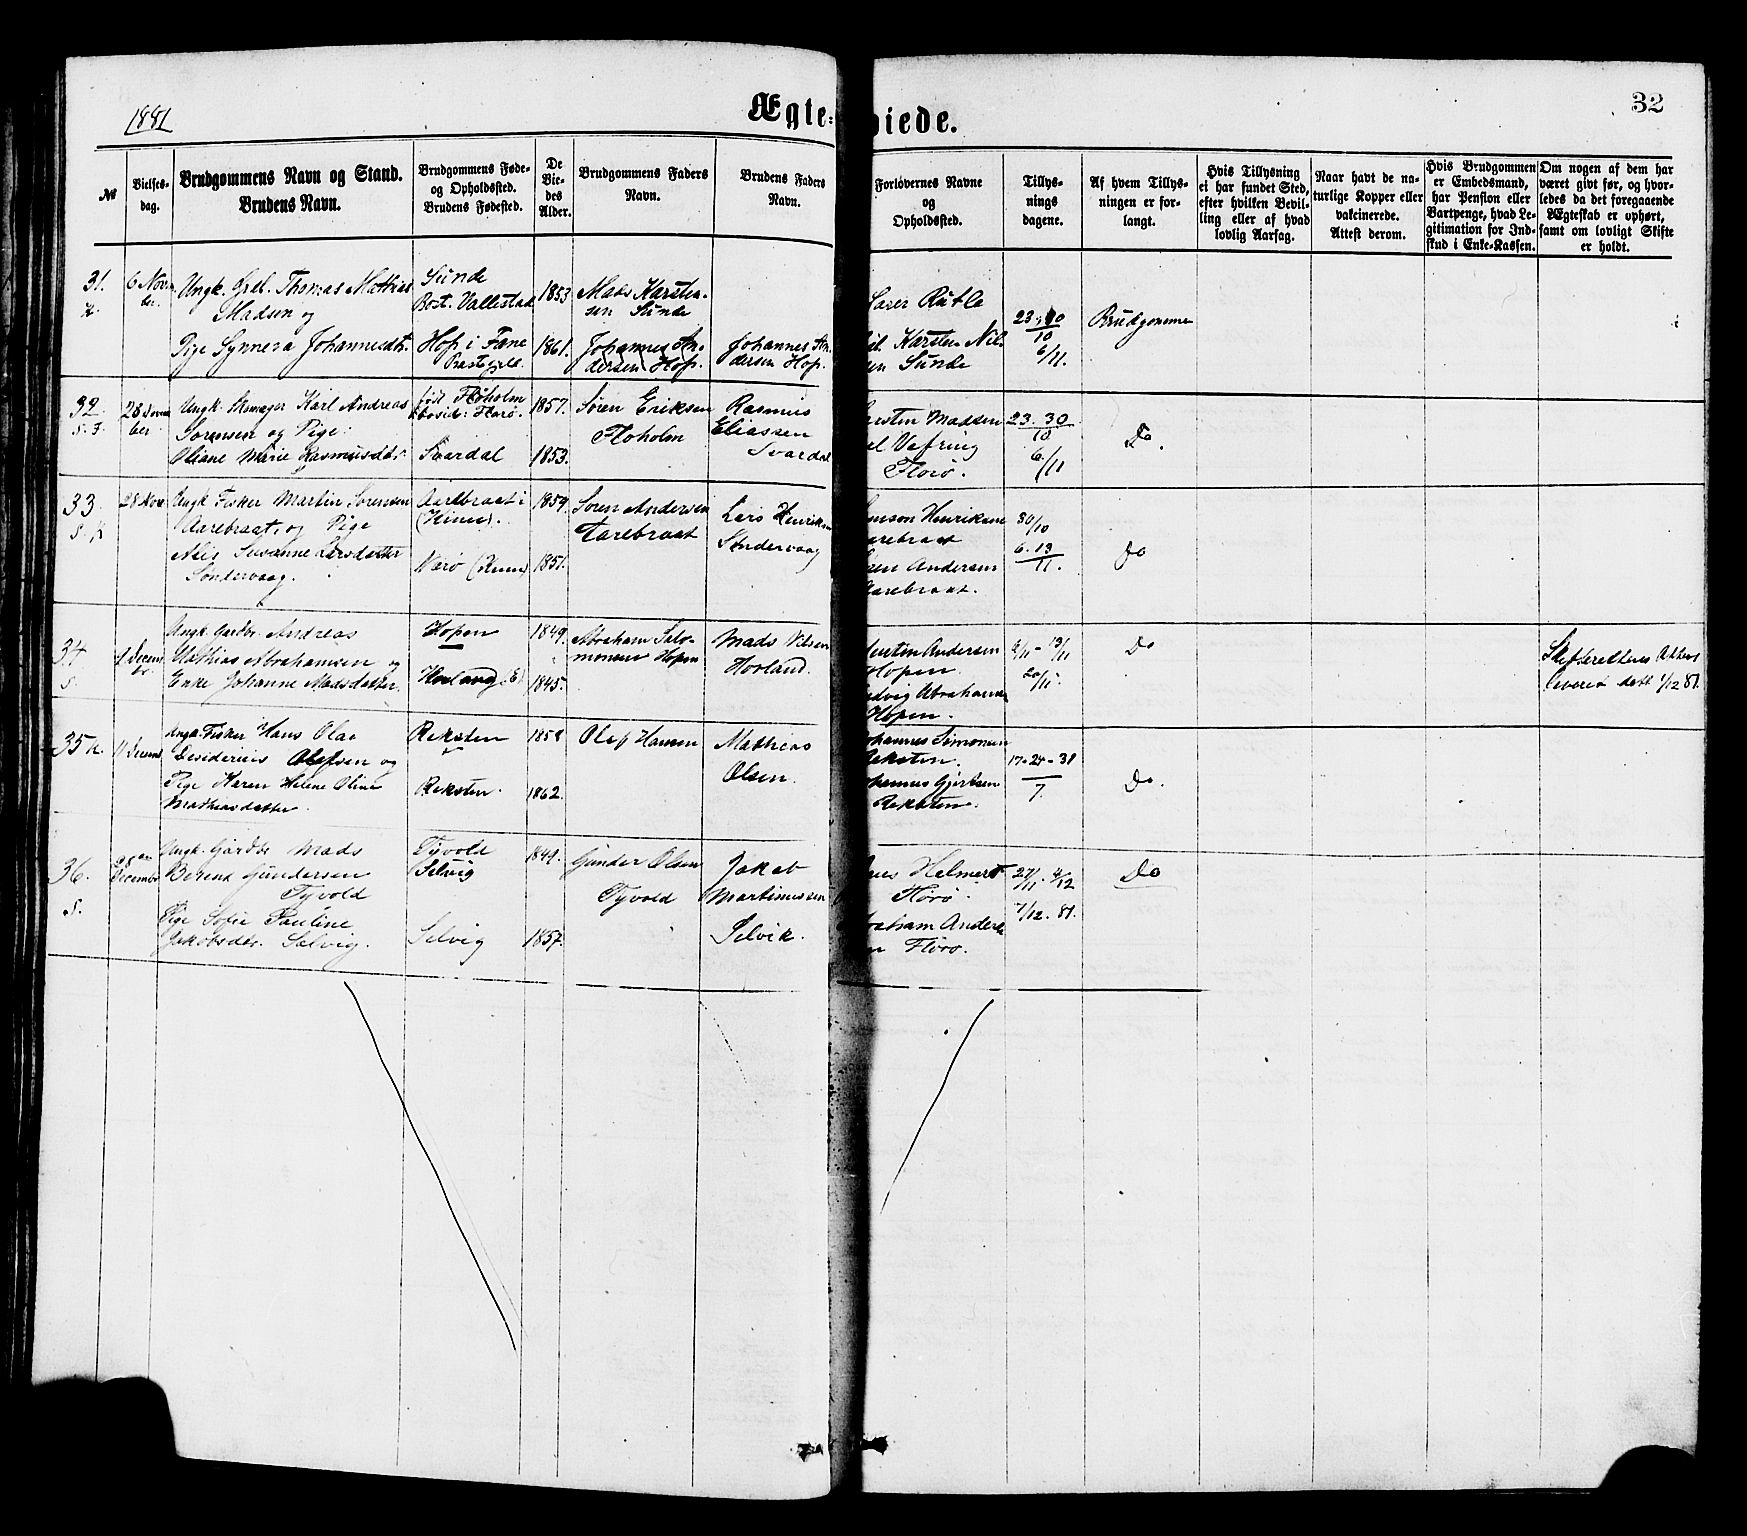 1881
Ægte=
viede.
32
№
Vielses-
dag.
Brudgommens Navn og Stand.
Brudens Navn.
Brudgommens Føde-
og Opholdssted.
Brudens Fødested.
De
Vie-
des
Alder.
Brudgommens Faders
Navn.
Brudens Faders
Navn.
Forlovernes Navne
og
Opholdssted.
Tillys-
nings
dagene.
Af hvem Tillys-
ningen er for-
langt.
Hvis Tillysning
ei har fundet Sted,
efter hvilken Bevil-
ling eller af hvad
lovlig Aarsag.
Naar havt de na-
turlige Kopper eller
vakcinerede.
Attest derom.
Hvis Brudgommen
er Embedsmand,
har Pension eller
Vartpenge, hvad Le-
gitimation for Ind-
skud i Enke-Kassen.
Om nogen af dem har
været givt før, og hvor-
ledes da det foregaaende
Ægteskab er ophørt,
samt om lovligt Skifte
er holdt.
31.
6 Novem
ber
Ungk. Thomas Mathias
Madsen og
Pige Synneva Johannesdtr.
Sunde
Bost. Vallestad
Hop i Fane
Præstegjeld
1853
1861.
Mads Karsten-
sen Sunde
Johannes An-
dersen Hop.
Johannes An-
dersen Hop.
Rutle
Karsten Nil-
sen Sunde
23. 30
10
6/11.
Brudgomme
32
28 Novem
ber
Ungk. Skomager Karl Andreas
Sørensen og Pige
Oliane Marie Rasmusdtr
født Floholm
bosit: Florø.
Svardal
1857.
1853.
Søren Eriksen
Floholm
Rasmus
Eliassen
Svardal
Karstin Madsen
Vefring
Florø.
23. 30
10
6/11
Do.
33
28 Nov
Ungk Fisker Martin Sørensen
Aarebraat, og Pige
Susanne Larsdatter
Søndervaag.
Aarebraat i
(Kinn).
Værø (Kinn)
1859.
1851.
Søren Andersen
Aarebraat
Lars Henriksen
Søndervaag
Henriksen
Aarebraat
Søren Andersen
Aarebraat.
30/10
6. 13
11.
Do
34
S.
4 Decem
br
Ungk. Gardbr. Andreas
Mathias Abrahamsen og
Enke Johanne Madsdatter.
Hopen
Hovland (E)
1849.
1845.
Abraham Salo-
monsen Hopen
Mads Nilsen
Hovland.
Andersen
Hopen.
Ludvig Abrahams
Hopen.
6/11 - 13/11
20/11.
Do
Skifterettens Attest
leveret dat. 1/12 81.
35 k.
11 Decemb
Ungk. Fisker Hans Olai
Desiderius Olefsen og
Pige Karen Helene Oline
Mathiasdatter.
Reksten
Reksten.
1858
1862.
Olef Hansen
Mathias
Olsen.
Johannes Simonsen
Reksten.
Johannes Gjertsen
Reksten.
17-24-31
7.
Do.
36.
S.
Decembr
Ungk. Gardbr Mads
Berent Gundersen
Tyvold
Pige Sofie Pauline
Jakobsdtr. Selvig.
Tyvold
Selvig
Selvig
1849.
1857.
Gunder Olsen
Tyvold
Jakob
Martinussen
Selvik.
Helmers
Florø.
Abraham Anders-
en Florø.
27/11. 4/12
7/12. 81.
Do